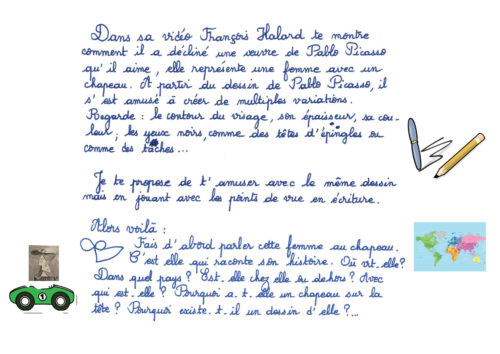 Dans sa vidéo François Halard te montre
comment il a décliné une œuvre de Pablo Picasso
qu'il aime, elle représente une femme avec un
chapeau. À partir du dessin de Pablo Picasso, il
s'est amusé à créer de multiples variations.
Regarde : le contour du visage, son épaisseur, sa cou-
leur ; les yeux noirs, comme des têtes d'épingles ou
comme des tâches...
Je te propose de t'amuser avec le même dessin
mais en jouant avec les points de vue en écriture.
Alors voilà :
Fais d'abord parler cette femme au chapeau.
C'est elle qui raconte son histoire. Où vit-elle?
Dans quel pays? Est-elle chez elle ou dehors? Avec
qui est-elle? Pourquoi a.t.elle un chapeau sur la
tête? Pourquoi existe.t.il un dessin d'elle?...
1